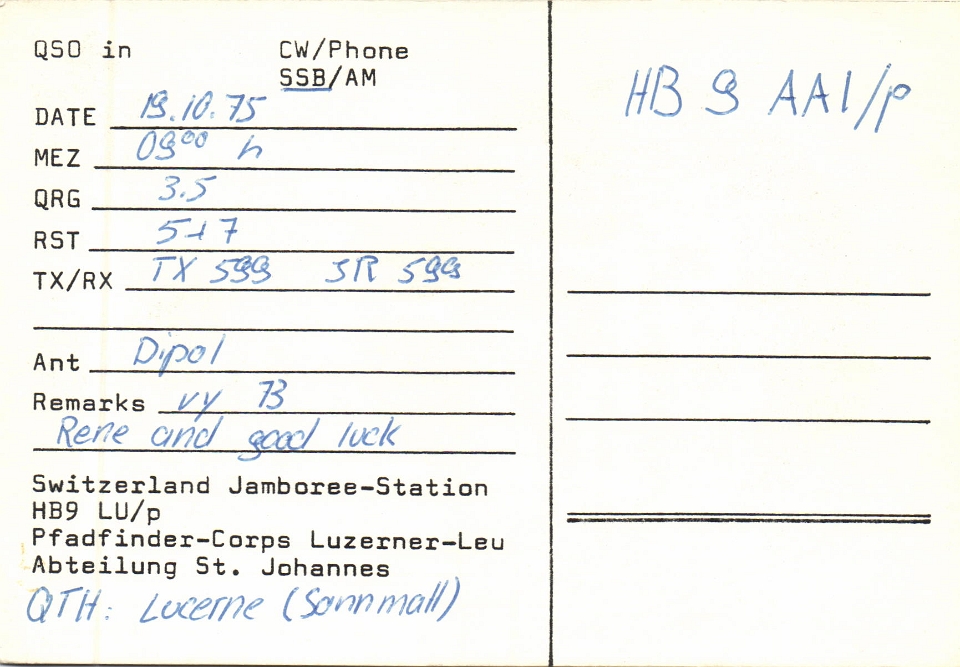 QSO in CW/Phone
SSB/AM
DATE 19.10.75
MEZ 09⁰⁰ h
QRG 3.5
RST 5+7
TX/RX TX 599 JR 599
Ant Dipol
Remarks vy 73
Rene and good luck
Switzerland Jamboree-Station
HB9 LU/p
Pfadfinder-Corps Luzerner-Leu
Abteilung St. Johannes
QTH: Lucerne (Sonnmatt)
HB 9 AAI/p